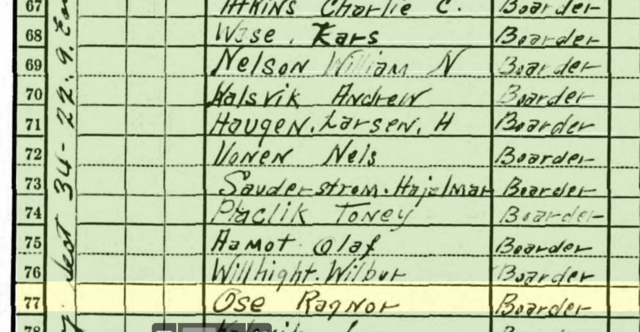 67 Atkins Charlie C. Boarder
68 Wise. Kars Boarder
69 Nelson William N Boarder
70 Halsvik Andrew Boarder
71 Haugen. Larsen. H Boarder
72 Vonen Nels Boarder
73 Sauderstrom. Hajelmar Boarder
74 Placlik Toney Boarder
75 Aamot Olaf Boarder
76 Willhight. Wilbur Boarder
77 Ose Ragnor Boarder
78
34-22.9.